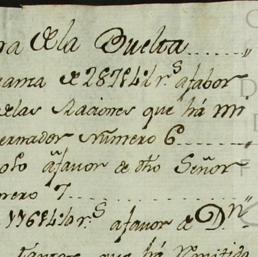 ra de la Buelta
uanta de 28714 rs afabor
de las Raciones que há m
ernador Numero 6
afavor de otro Señor
mero 7
17614 rs afavor de Dn
que há Remitido